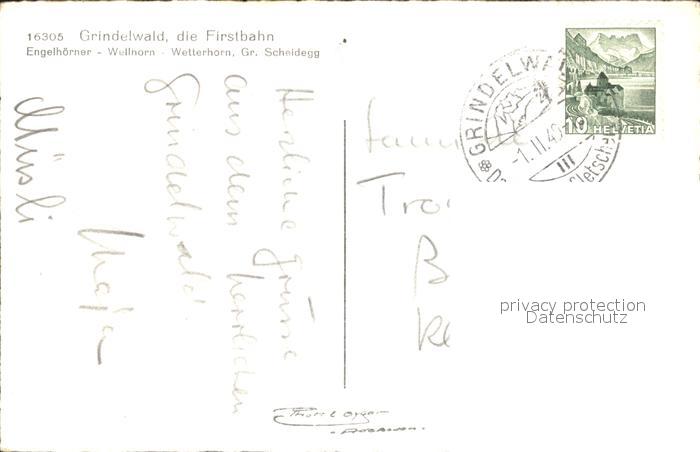 16305 Grindelwald, die Firstbahn
Engelhörner - Wellhorn - Wetterhorn, Gr. Scheidegg
Herzliche Grüsse
aus dem herrlichen
Grindelwald.
Maja
Müsli
GRINDELWA
-1.II.4
III
Gletsch
10 HELVETIA
Familie
Tro
B
Ke
privacy protection
Datenschutz